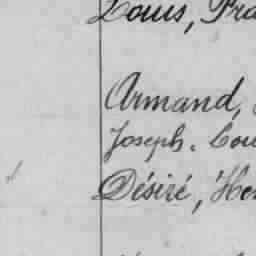 Louis, Fra
Armand,
Joseph. Cou
Désiré, Hen